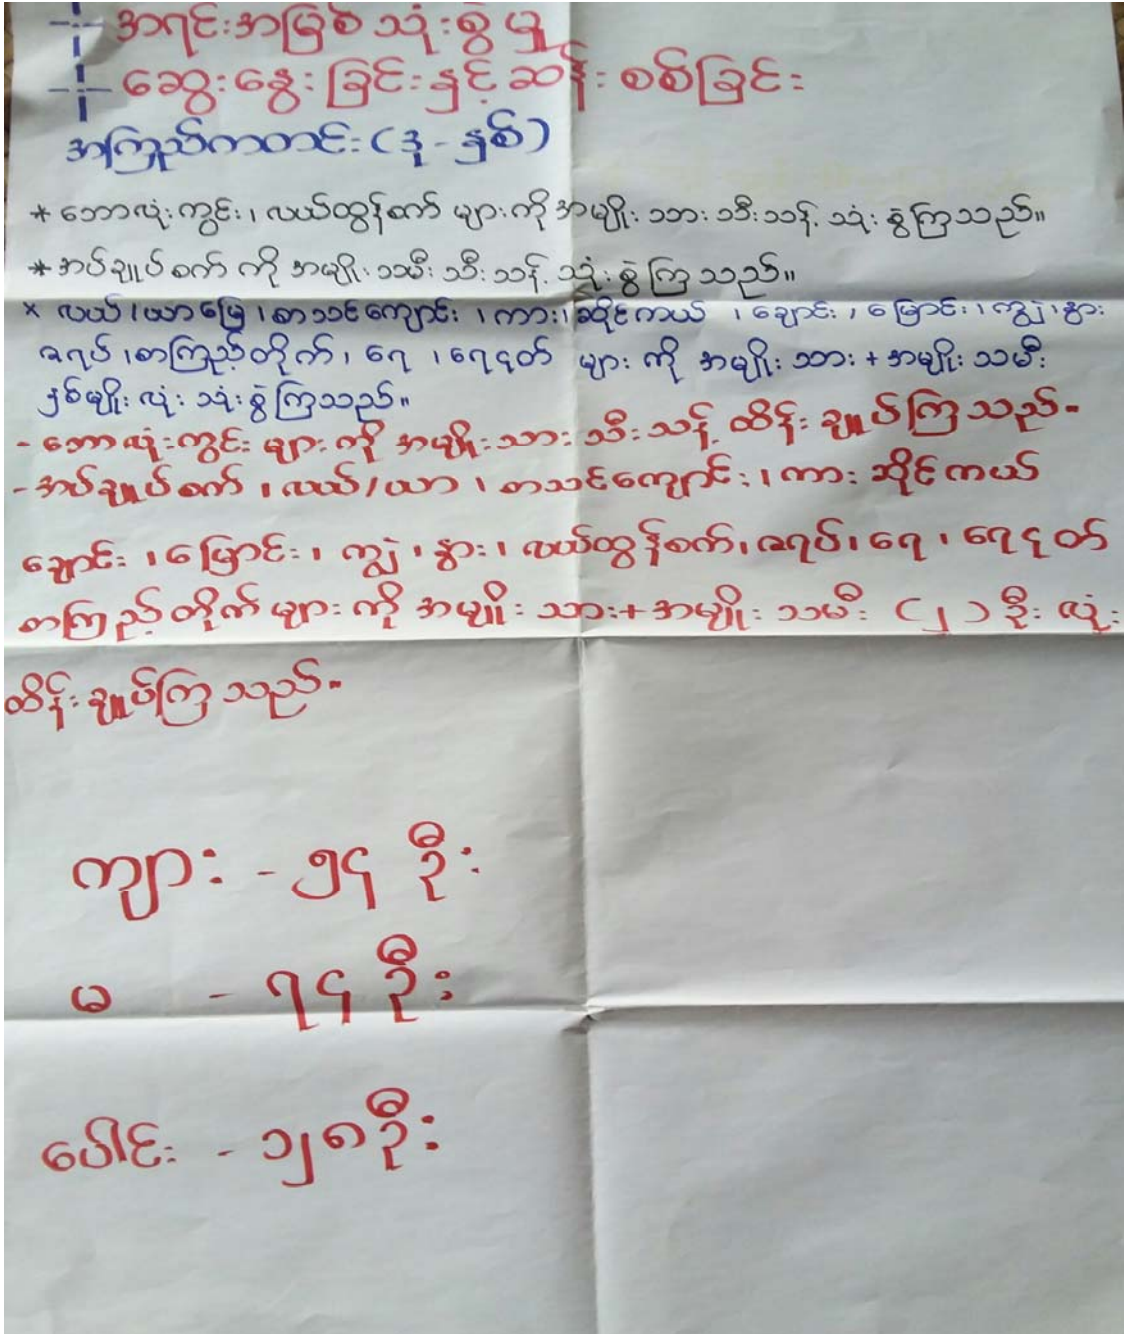 အရင်းအမြစ်သုံးစွဲမှု
ဆွေးနွေးခြင်းနှင့်ဆန်းစစ်ခြင်း
အကြည်ကတင်း(ဒု-နှစ်)
* ဘောလုံးကွင်း၊ လယ်ထွန်စက် များကို အမျိုးသားသီးသန့် သုံးစွဲကြသည်။
* အပ်ချုပ်စက် ကို အမျိုးသမီး သီးသန့် သုံးစွဲကြသည်။
× လယ်/ယာမြေ၊ စာသင်ကျောင်း၊ ကား၊ ဆိုင်ကယ် ၊ ချောင်း၊ မြောင်း၊ ကျွဲ၊ နွား
ဇရပ်၊ စာကြည့်တိုက်၊ ရေ ၊ ရေငုတ် များ ကို အမျိုးသား+အမျိုးသမီး
နှစ်မျိုးလုံး သုံးစွဲကြသည်။
- ဘောလုံးကွင်း များ ကို အမျိုးသား သီးသန့် ထိန်းချုပ်ကြသည်-
- အပ်ချုပ်စက် ၊ လယ်/ယာ ၊ စာသင်ကျောင်း ၊ ကား ဆိုင်ကယ်
ချောင်း ၊ မြောင်း ၊ ကျွဲ ၊ နွား ၊ လယ်ထွန်စက်၊ ဇရပ်၊ ရေ ၊ ရေငုတ်
စာကြည့်တိုက်များ ကို အမျိုးသား+အမျိုးသမီး (၂) ဦးလုံး
ထိန်းချုပ်ကြသည်-
ကျား - ၅၄ ဦး
မ - ၇၄ ဦး
ပေါင်း - ၁၂၈ ဦး